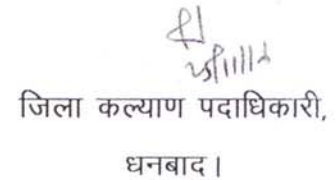 जिला कल्याण पदाधिकारी,
धनबाद।